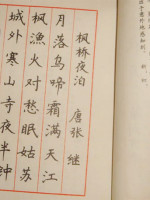 枫桥夜泊 唐 张继
月落乌啼霜满天江
枫漁火对愁眠姑苏
城外寒山寺夜半钟